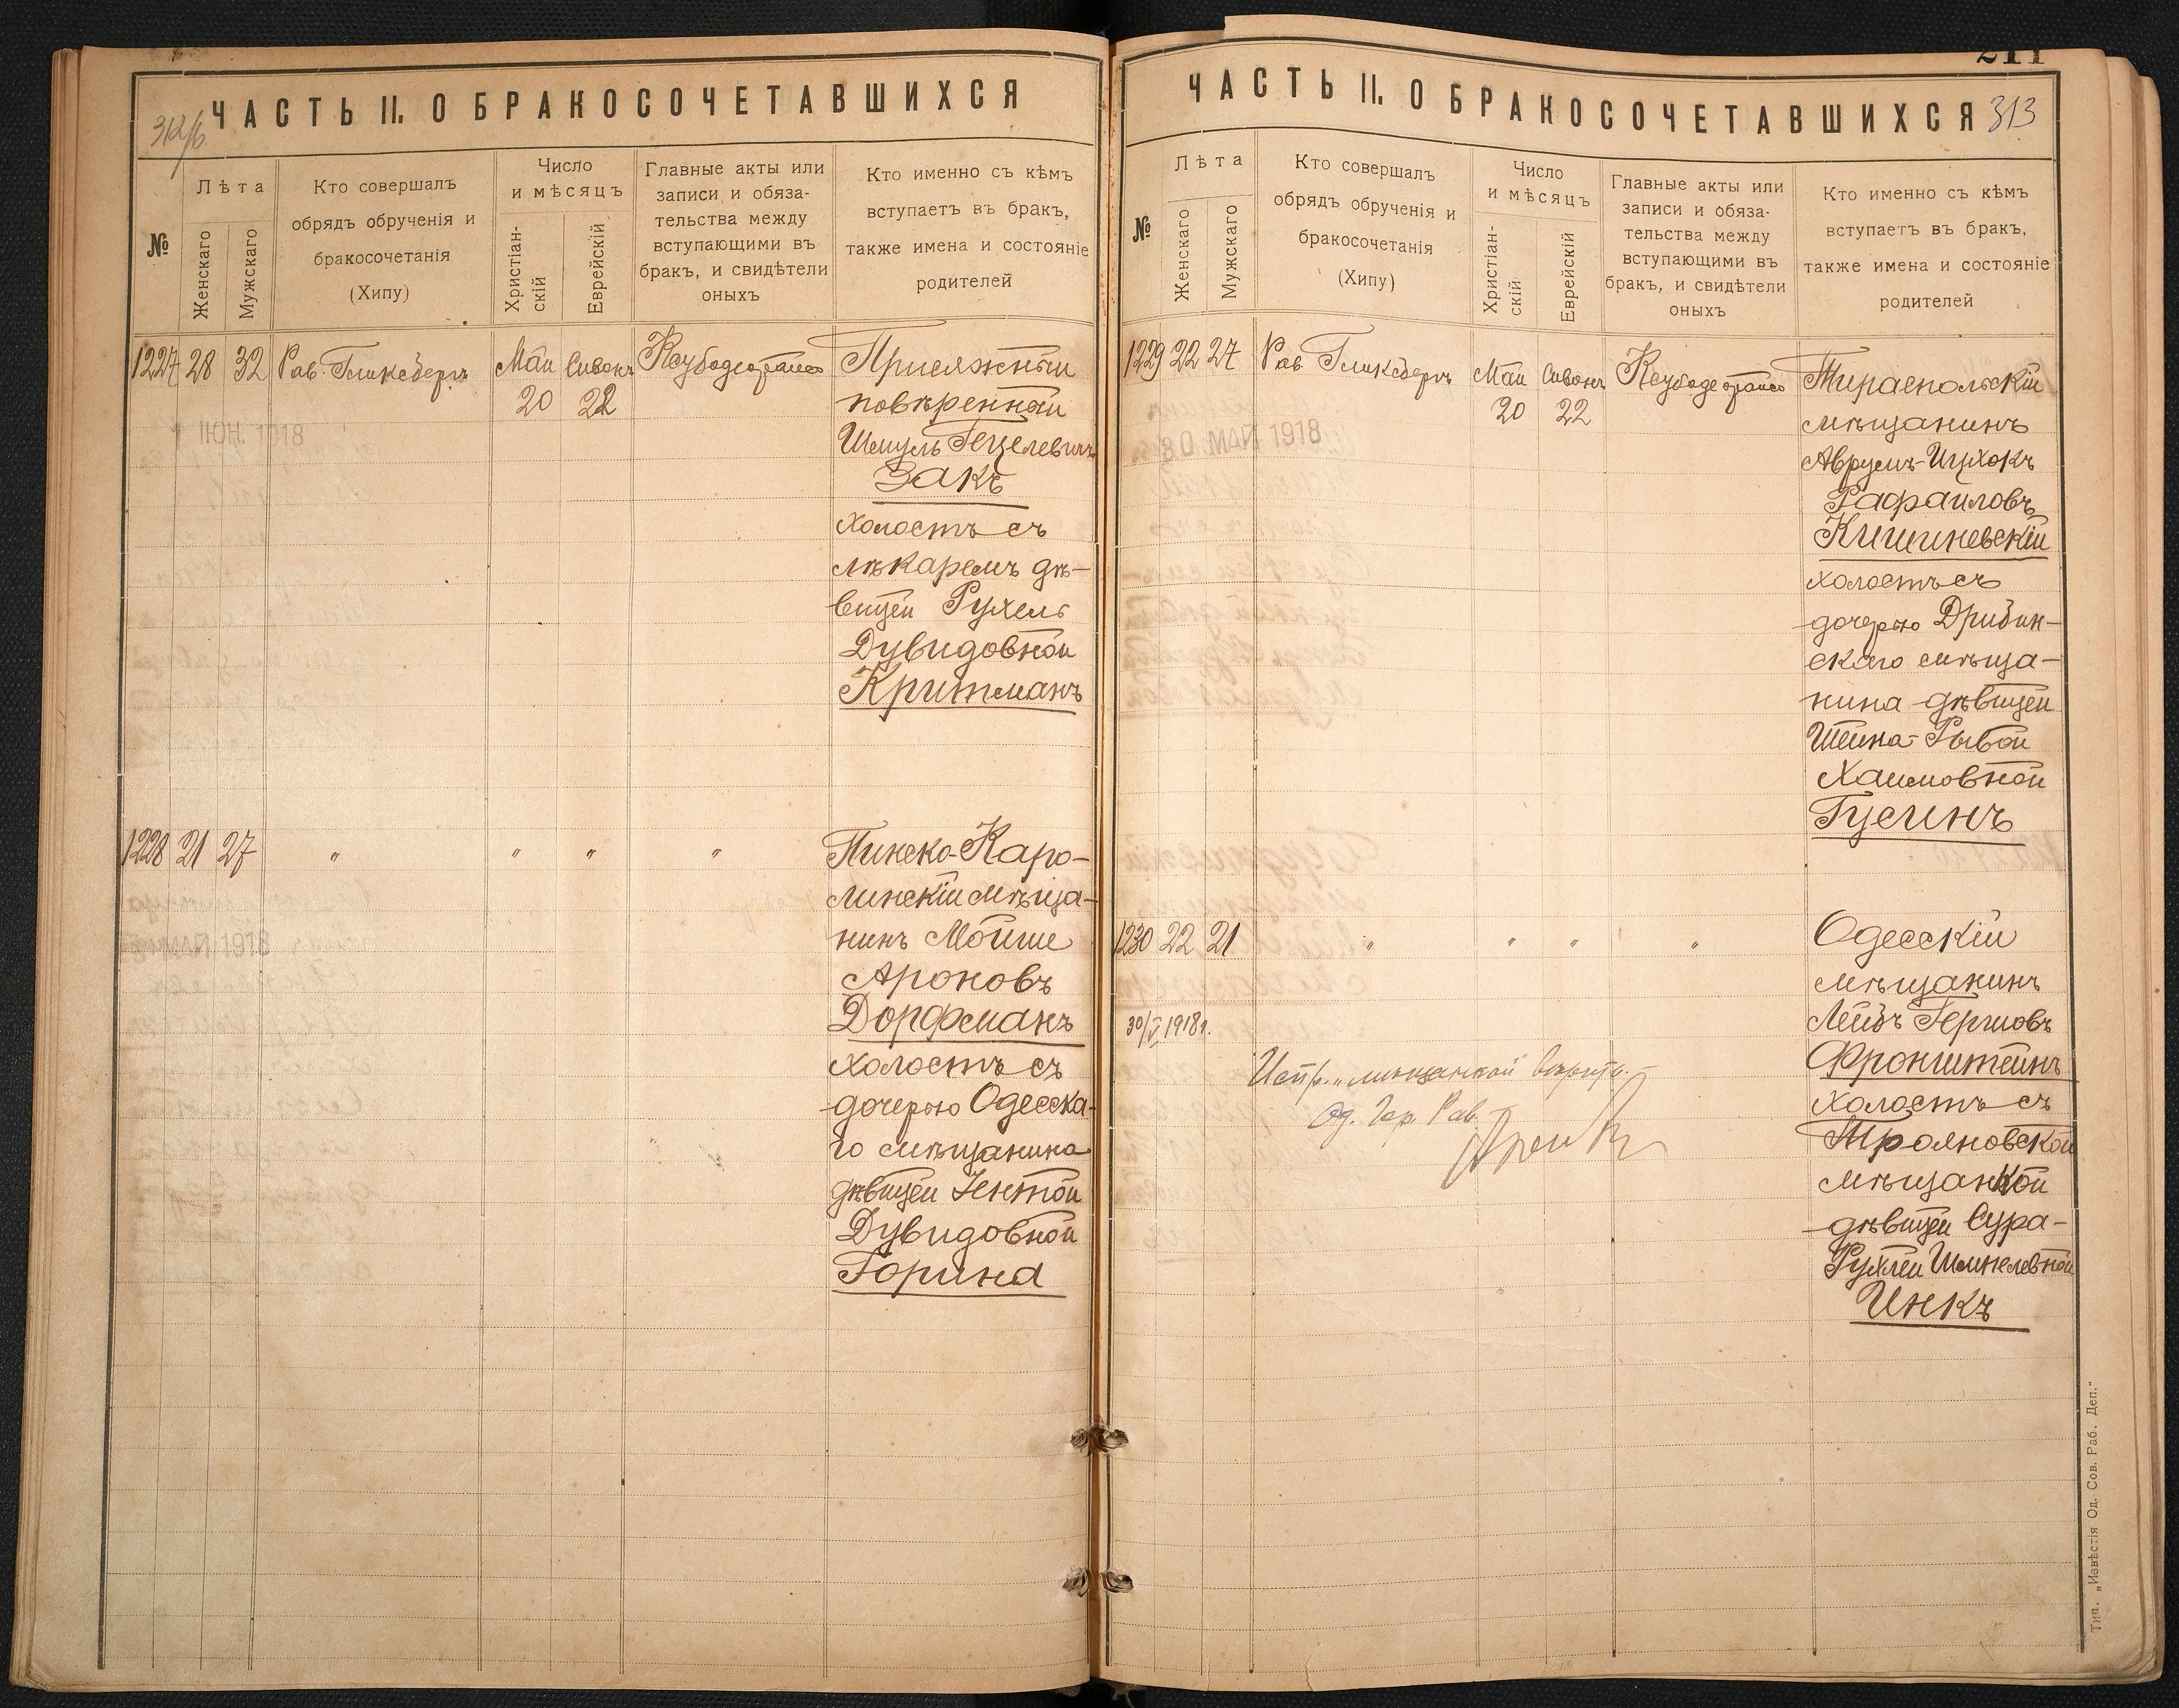 ЧАСТЬ II. О БРАКОСОЧЕТАВШИХСЯ
№
Лѣта
Женскаго
Мужскаго
Кто совершалъ
обрядъ обрученія и
бракосочетанія
(Хипу)
Число
и мѣсяцъ
Христіан-
скій
Еврейскій
Главные акты или
записи и обяза-
тельства между
вступающими въ
бракъ, и свидѣтели
оныхъ
Кто именно съ кѣмъ
вступаетъ въ бракъ,
также имена и состояніе
родителей
1227 28 32 Рав. Гликсбергъ Май Сивонъ
20 22
ІЮН. 1918
Присяжный
повѣренный
Шмуль Гецелевичъ
Закъ
холостъ съ
лѣкаремъ дѣ-
вицей Рухель
Дувидовной
Критманъ
1228 21 27 " " " "
МАЙ 1918
Пинско-Каро-
линскій мѣща-
нинъ Мойше
Ароновъ
Дорфманъ
холостъ съ
дочерью Одесска-
го мѣщанина
дѣвицей Ентой
Дувидовной
Горина
ЧАСТЬ II. О БРАКОСОЧЕТАВШИХСЯ 313
№
Лѣта
Женскаго
Мужскаго
Кто совершалъ
обрядъ обрученія и
бракосочетанія
(Хипу)
Число
и мѣсяцъ
Христіан-
скій
Еврейскій
Главные акты или
записи и обяза-
тельства между
вступающими въ
бракъ, и свидѣтели
оныхъ
Кто именно съ кѣмъ
вступаетъ въ бракъ,
также имена и состояніе
родителей
1229 22 27 Рав. Гликсбергъ Май Сивонъ
20 22
30 МАЙ 1918
Тираспольскій
мѣщанинъ
Аврумъ-Ицхокъ
Рафаиловъ
Кишиневскій
холостъ съ
дочерью Дрибин-
скаго мѣща-
нина дѣвицей
Шейна-Рывой
Хаимовной
Гусинъ
1230 22 21 " " " "
30/V 1918 г.
Испр. „мѣщанкой" вѣрить.
Од. Гор. Рав.
Одесскій
мѣщанинъ
Лейбъ Гершовъ
Фронштейнъ
холостъ съ
Трояновской
мѣщанкой
дѣвицей Сура-
Рухлей Шмилевной
Инкъ
Тип. „Извѣстія Од. Сов. Раб. Деп."